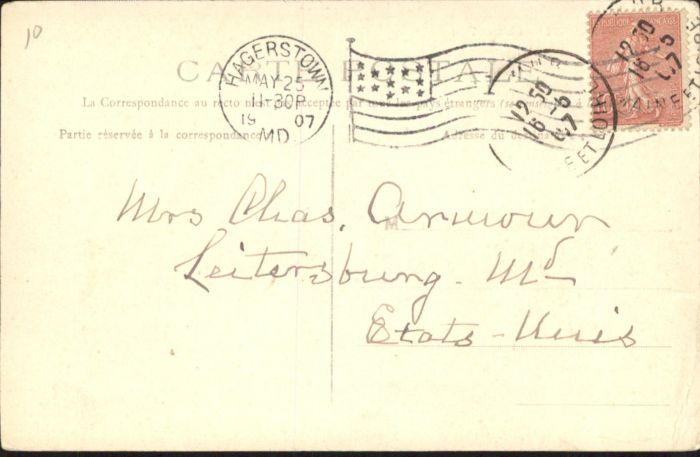 10
CARTE POSTALE
La Correspondance au recto n'est pas acceptée par tous les pays étrangers (se
Partie réservée à la correspondance
Adresse du
HAGERSTOWN
MAY 25
11-30P
19 07
MD.
12 50
16 -5
07
ET LOIRE
RÉPUBLIQUE FRANÇAISE
12 50
16 -5
07
MAINE ET
M
Mrs Chas. Armour
Leitersburg. Md
Etats-Unis